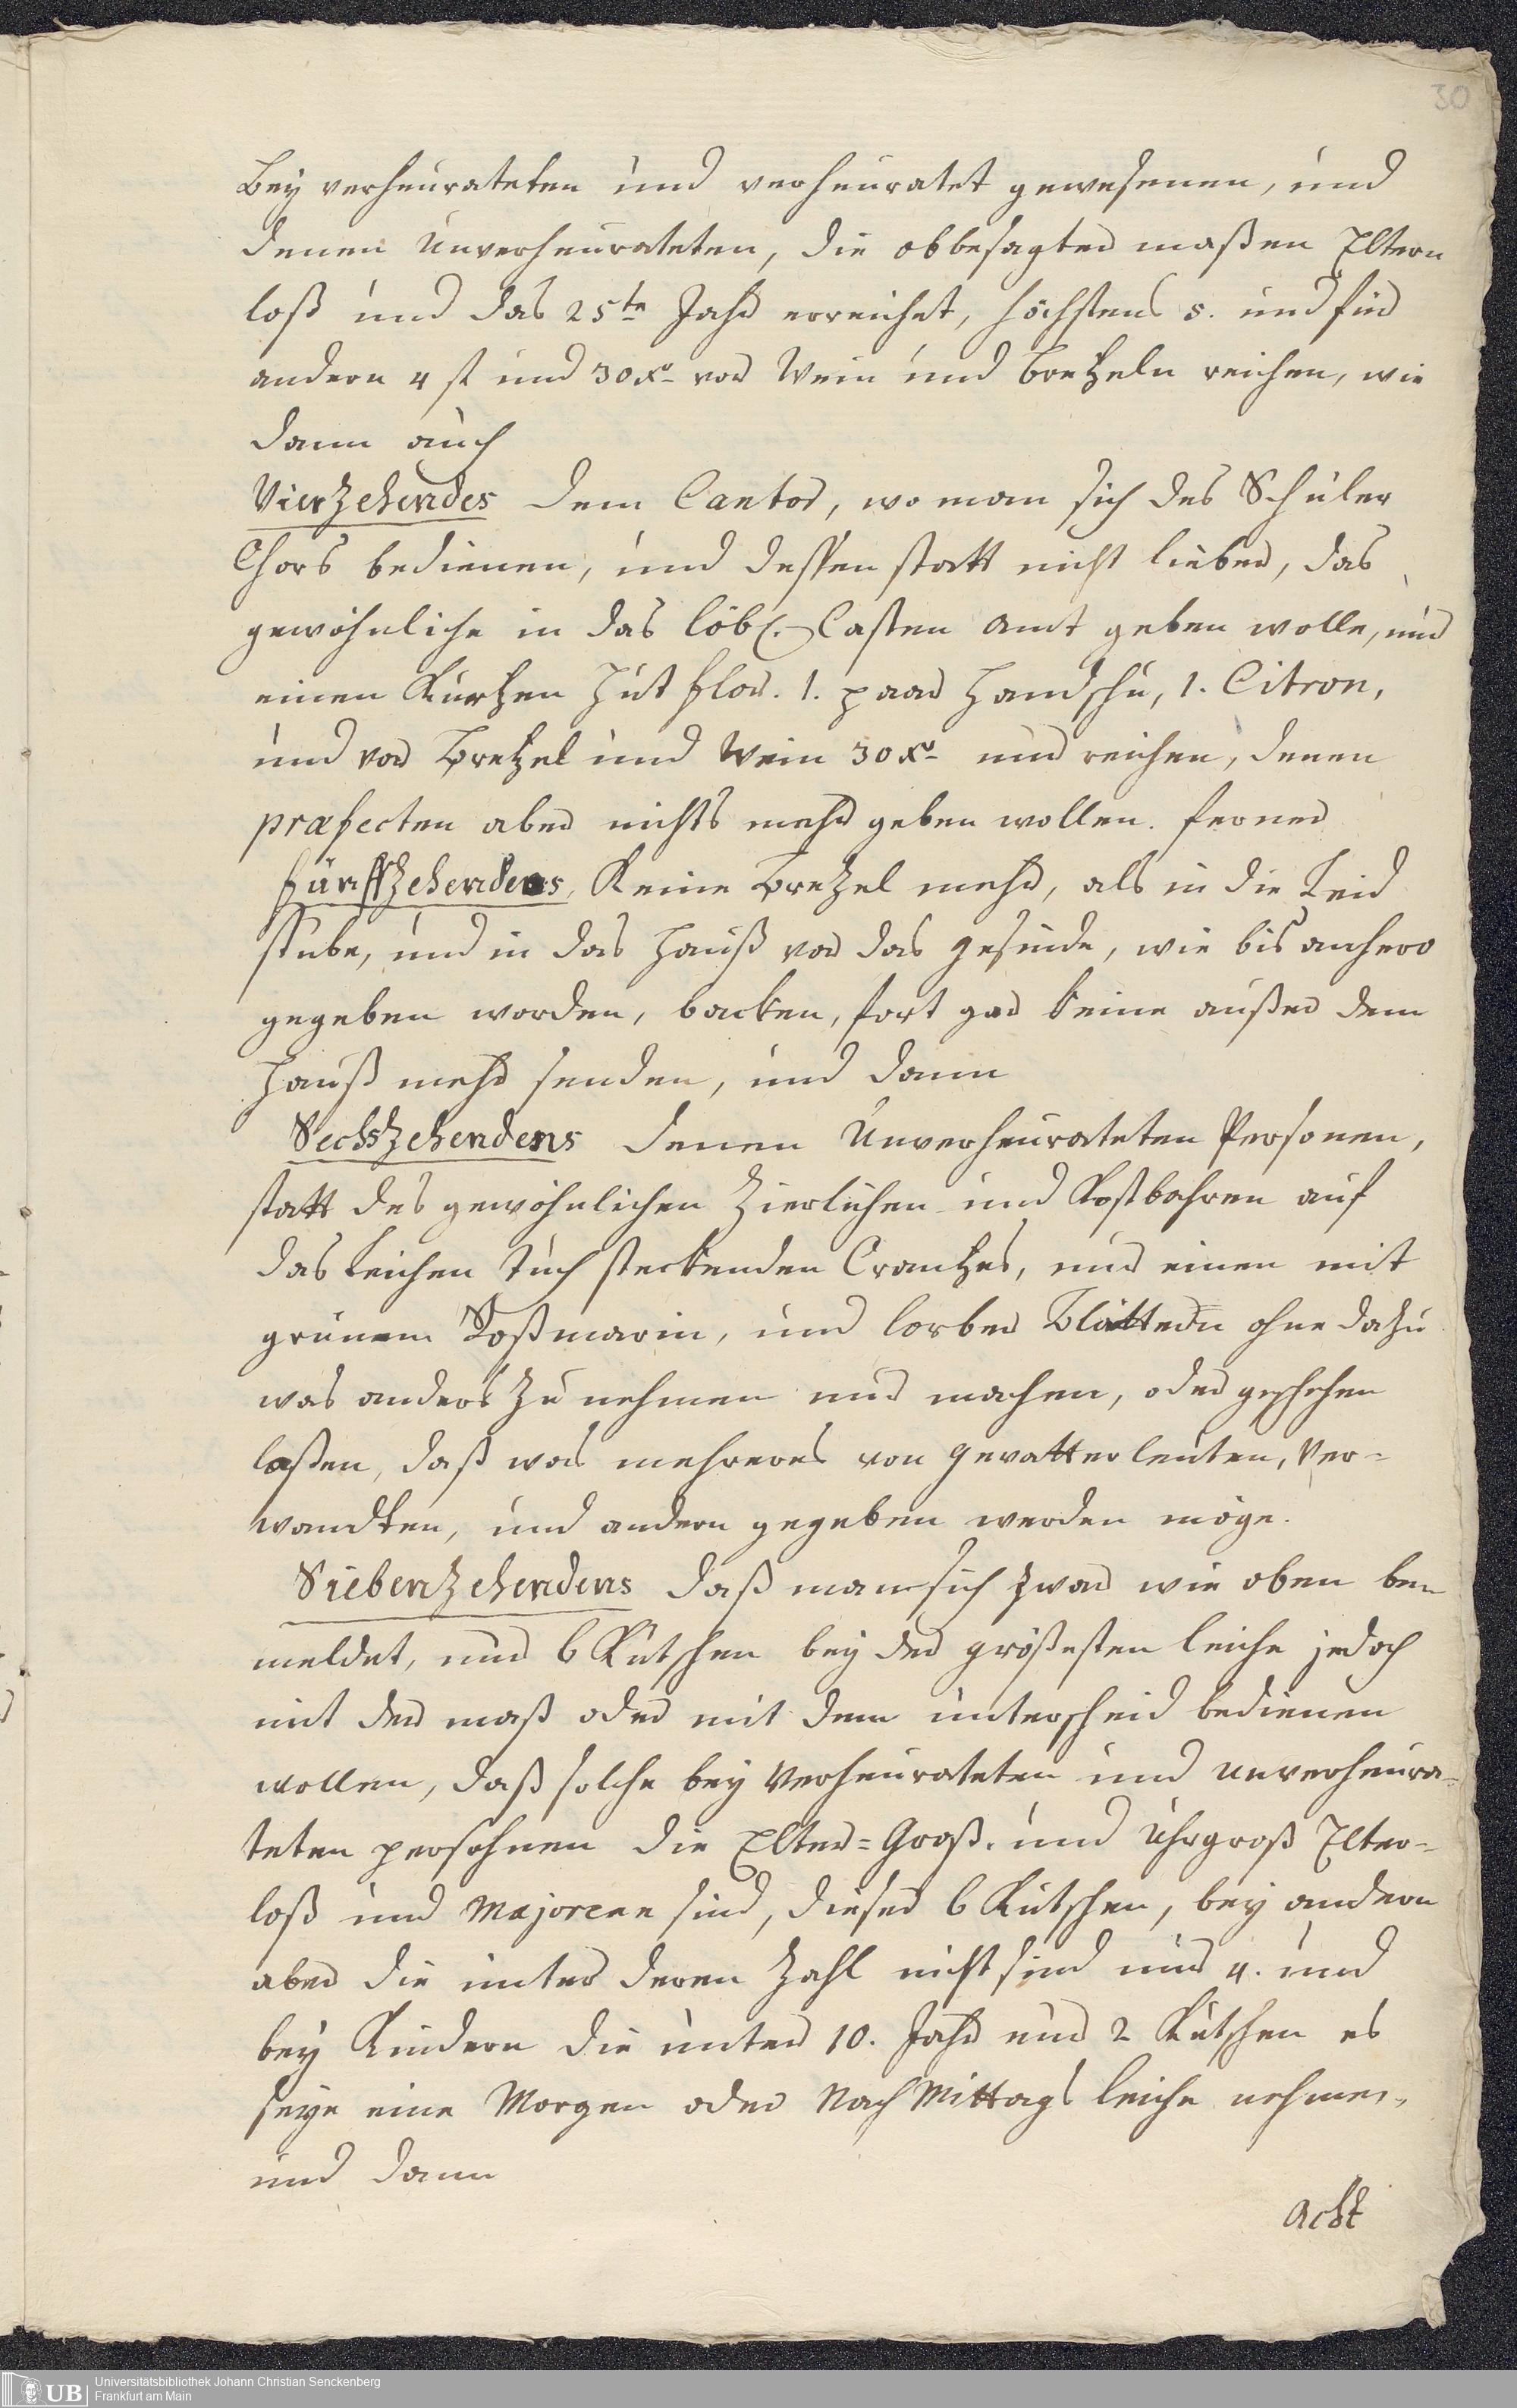 30
Bey verheurateten und verheuratet gewesenen, und
denen Unverheurateten, die obbesagter maßen Eltern
loß und das 25te Jahr erreichet, höchstens 5. und für
andern 4 fl und 30 xr. vor Wein und Bretzeln reichen, wie
dann auch
Vierzehendes dem Cantor, wo man sich des Schüler
Chors bedienen, und dessen statt nicht lieber, das
gewöhnliche in das löbl. Casten Amt geben wolle, nur
einen Kurtzen Hut flor. 1. paar Handschu, 1. Citron,
und vor Bretzel und Wein 30 xr. nur reichen, denen
præfecten aber nichts mehr geben wollen. ferner
fünffzehendens, Keine Bretzel mehr, als in die Leid
stube, und in das Hauß vor das gesinde, wie bis anhero
gegeben worden, backen, fort gar keine außer dem
Hauß mehr senden, und dann
Sechszehendens denen Unverheurateten Personen,
statt des gewöhnlichen Zierlichen und Kostbahren auf
das Leichen Tuch steckenden Crantzes, nur einen mit
grünem Roßmarin, und lorber Blättern ohne dazu
was anders zu nehmen nur machen, oder geschehen
laßen, daß was mehreres von gevatterleuten, Ver=
wandten, und andern gegeben werden möge.
Siebenzehendens daß man sich zwar wie oben be=
meldet, nur 6 Kutschen bey der größesten leiche jedoch
mit der maß oder mit dem unterscheid bedienen
wollen, daß solche bey Verheurateten und unverheura=
teten persohnen die Elter= Groß. und Uhrgroß Elter=
loß und Majorenn sind, dieser 6 Kutschen, bey andern
aber die unter deren Zahl nicht sind nur 4. und
bey Kindern die unter 10. Jahr nur 2 Kutschen es
seye eine Morgen oder Nach Mittags leiche nehmen,
und dann
Acht
UB Universitätsbibliothek Johann Christian Senckenberg
Frankfurt am Main